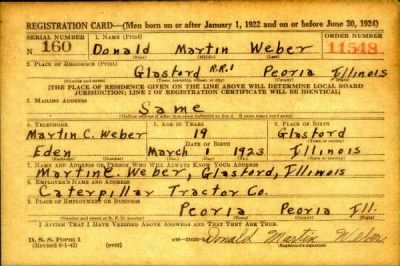 REGISTRATION CARD—(Men born on or after January 1, 1922 and on or before June 30, 1924)
SERIAL NUMBER 1. NAME (Print) ORDER NUMBER
N 160 Donald Martin Weber 11548
(First) (Middle) (Last)
2. PLACE OF RESIDENCE (Print)
Glasford R.R.1 Peoria Illinois
(Number and street) (Town, township, village, or city) (County) (State)
[THE PLACE OF RESIDENCE GIVEN ON THE LINE ABOVE WILL DETERMINE LOCAL BOARD
JURISDICTION; LINE 2 OF REGISTRATION CERTIFICATE WILL BE IDENTICAL]
3. MAILING ADDRESS
Same
4. TELEPHONE 5. AGE IN YEARS 6. PLACE OF BIRTH
Martin C. Weber 19 Glasford
DATE OF BIRTH
Eden March 1 1923 Illinois
7. NAME AND ADDRESS OF PERSON WHO WILL ALWAYS KNOW YOUR ADDRESS
Martin C. Weber, Glasford, Illinois
8. EMPLOYER'S NAME AND ADDRESS
Caterpillar Tractor Co.
Peoria Peoria Ill.
I AFFIRM THAT I HAVE VERIFIED ABOVE ANSWERS AND THAT THEY ARE TRUE.
D. S. S. Form 1
(Revised 6-1-42) (over) Donald Martin Weber
(Registrant's signature)